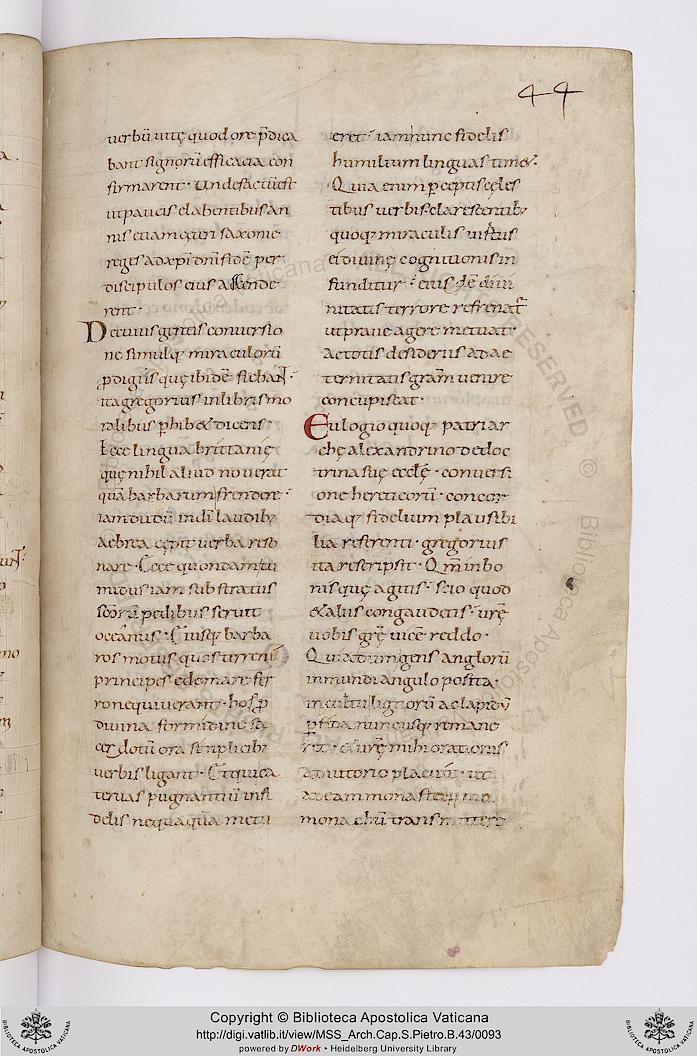 44
verbū vitę quod ore p̄dica
bant signorū efficacia con
firmarent· Unde factū est
ut paucis elabentibus an
nis etiam ceteri saxonie
reges ad xp̄i dnī fidē per
discipulos eius ascende
rent·
De cuius gentis conversio
ne simulq; miraculorū
p̄digiis quę ibidē fiebant·
ita gregorius in libris mo
ralibus phibet dicens·
Ecce lingua brittanię
quę nihil aliud noverat
quā barbarum frendere·
iamdudū in dī laudib;
aebrea cępit verba reso
nare· Ecce quondam tu
midus iam substratus
scōrū pedibus servit
oceanus· Eiusq; barba
ros motus quos terreni
principes edomare fer
ro nequiverant· hos p
divina formidine sa
cerdotū ora simplicib;
verbis ligant· Et qui ca
tervas pugnantiū infi
delis nequaquā metu
eret· iam nunc fidelis
humilium linguas timet·
Quia enim pceptis cęles
tibus verbis· clarescentib;
quoq; miraculis virtus
ei divinę cognitionis in
funditur· eius dē divi
nitatis terrore refrenat̄
ut prave agere metuat·
Ac totis desideriis ad ae
ternitatis gratiā venire
concupiscat·
Eulogio quoq; patriar
chę alexandrino de doc
trina suę ecclę· conversi
one hereticorū· concor
diaq; fidelium plausibi
lia referenti· gregorius
ita rescripsit· Qm̄ in bo
nis quę agitis· scio quod
et aliis congaudetis· vrę̄
vobis grę̄ vicē reddo·
Quia dum gens anglorū
in mundi angulo posita·
in cultu lignorū ac lapidū
pfida nunc usq; remane
ret· ex vrę̄ mihi orationis
adiutorio placuit· ut
ad eam monasterii mo
monachū transmittere
Copyright © Biblioteca Apostolica Vaticana
http://digi.vatlib.it/view/MSS_Arch.Cap.S.Pietro.B.43/0093
powered by DWork · Heidelberg University Library